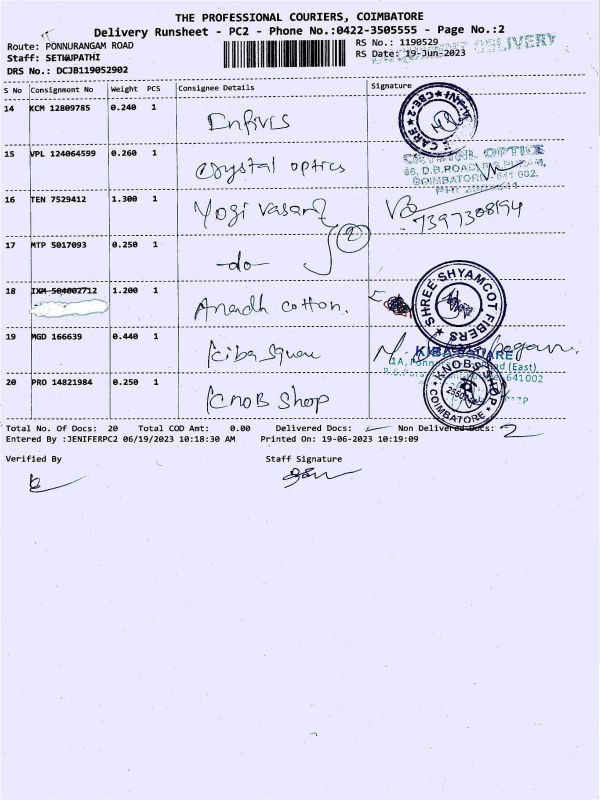 THE PROFESSIONAL COURIERS, COIMBATORE
Delivery Runsheet - PC2 - Phone No.:0422-3505555 - Page No.:2
Route: PONNURANGAM ROAD
Staff: SETHUPATHI
DRS No.: DCJB119052902
RS No.: 1190529
RS Date: 19-Jun-2023
DELIVERY
S No Consignment No Weight PCS Consignee Details Signature
14 KCM 12809785 0.240 1 Enfivis
CARE CBE-2
15 VPL 124064599 0.260 1 Crystal optics
OPTICS
D.B.ROAD, R.S.PURAM,
COIMBATORE 641 002.
16 TEN 7529412 1.300 1 Yogi Vasant
7397308194
17 MTP 5017093 0.250 1 -do- 2
18 IXM 504002712 1.200 1 Anadh cotton.
SHREE SHYAMCOT FIBERS
19 MGD 166639 0.440 1 Kiba Square
KIBA SQUARE
1A, (East)
641002
20 PRO 14821984 0.250 1 KnoB Shop
KNOBS SHOP
COIMBATORE
Total No. Of Docs: 20 Total COD Amt: 0.00 Delivered Docs: Non Delivered Docs: 2
Entered By :JENIFERPC2 06/19/2023 10:18:30 AM Printed On: 19-06-2023 10:19:09
Verified By Staff Signature